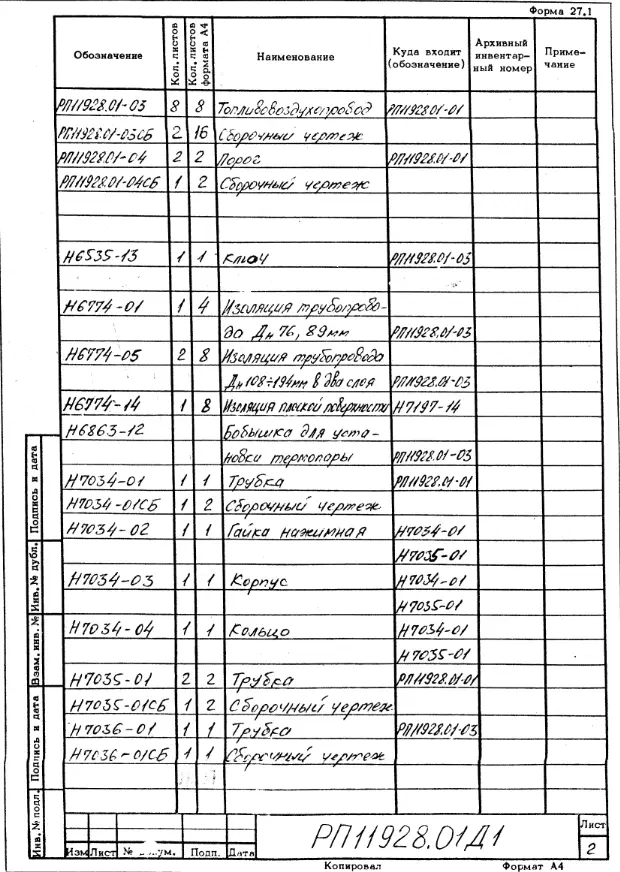 Форма 27.1
Обозначение Кол. листов Кол. листов формата А4 Наименование Куда входит (обозначение) Архивный инвентар- ный номер Приме- чание
РП11928.01-03 8 8 Топливовоздухопровод РП11928.01-01
РП11928.01-03СБ 2 16 Сборочный чертеж
РП11928.01-04 2 2 Порог РП11928.01-01
РП11928.01-04СБ 1 2 Сборочный чертеж
Н6535-13 1 1 Ключ РП11928.01-03
Н6774-01 1 4 Изоляция трубопрово-
да Дн 76, 89мм РП11928.01-03
Н6774-05 2 8 Изоляция трубопровода
Дн 108÷194мм в два слоя РП11928.01-03
Н6774-14 1 8 Изоляция плоской поверхности Н7197-14
Н6863-12 Бобышка для уста-
новки термопары РП11928.01-03
Н7034-01 1 1 Трубка РП11928.01-01
Н7034-01СБ 1 2 Сборочный чертеж
Н7034-02 1 1 Гайка нажимная Н7034-01
Н7035-01
Н7034-03 1 1 Корпус Н7034-01
Н7035-01
Н7034-04 1 1 Кольцо Н7034-01
Н7035-01
Н7035-01 2 2 Трубка РП11928.01-01
Н7035-01СБ 1 2 Сборочный чертеж
Н7036-01 1 1 Трубка РП11928.01-03
Н7036-01СБ 1 1 Сборочный чертеж
Подпись и дата
Инв. № дубл.
Взам. инв. №
Подпись и дата
Инв. № подл.
РП11928.01Д1
Лист
2
Изм Лист № Подп. Дата
Копировал Формат А4